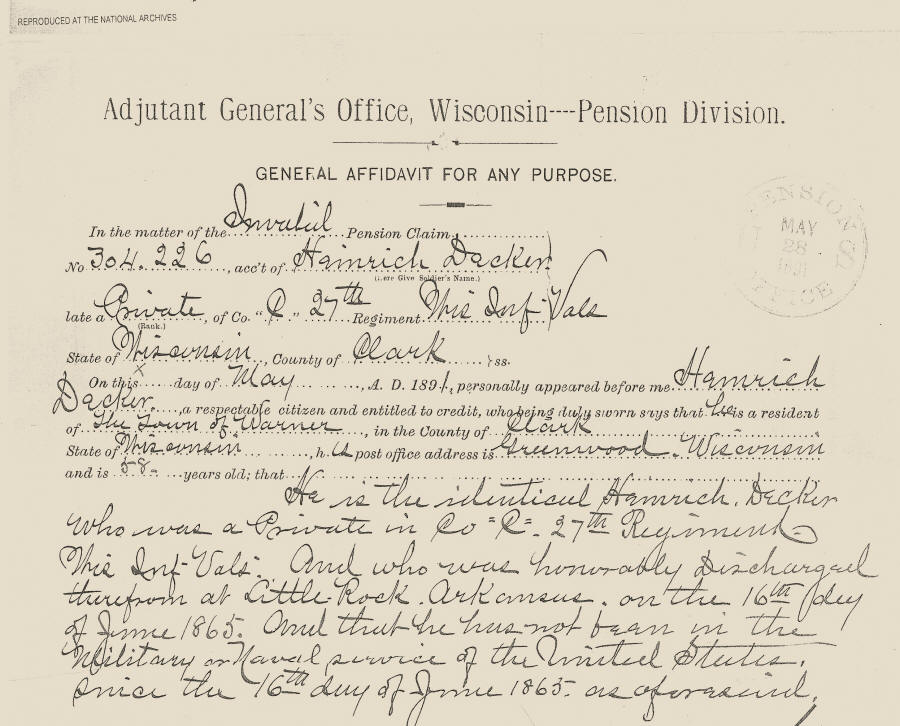 REPRODUCED AT THE NATIONAL ARCHIVES
Adjutant General's Office, Wisconsin----Pension Division.
GENERAL AFFIDAVIT FOR ANY PURPOSE.
PENSION OFFICE
MAY
28
1891
U S
In the matter of the Invalid Pension Claim
No 304.226, acc't of Heinrich Decker
(Here Give Soldier's Name.)
late a Private, of Co. "C" 27th Regiment Wis Inf Vols
(Rank.)
State of Wisconsin, County of Clark }ss.
On this x day of May, A. D. 1891, personally appeared before me Heinrich
Decker, a respectable citizen and entitled to credit, who being duly sworn says that he is a resident
of The Town of Warner, in the County of Clark
State of Wisconsin, his post office address is Greenwood. Wisconsin
and is 58 years old; that
He is the identical Heinrich. Decker
Who was a Private in Co "C". 27th Regiment
Wis Inf Vols. And who was honorably Discharged
therefrom at Little Rock. Arkansas. on the 16th day
of June 1865. And that he has not been in the
Military or Naval service of the United States.
since the 16th day of June 1865. as aforesaid.